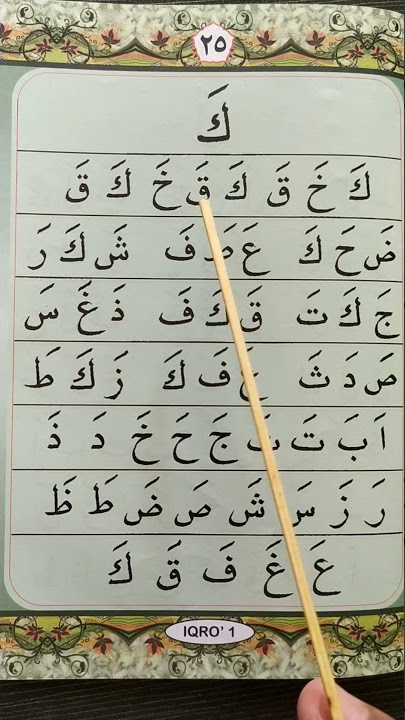 ٢٥
كَ
كَ خَ قَ كَ قَ خَ كَ قَ
ضَ حَ كَ عَ طَ فَ شَ كَ رَ
جَ كَ تَ قَ كَ فَ ذَ غَ سَ
صَ دَ ثَ فَ كَ زَ كَ طَ
اَ بَ تَ ثَ جَ حَ خَ دَ ذَ
رَ زَ سَ شَ صَ ضَ طَ ظَ
عَ غَ فَ قَ كَ
IQRO' 1